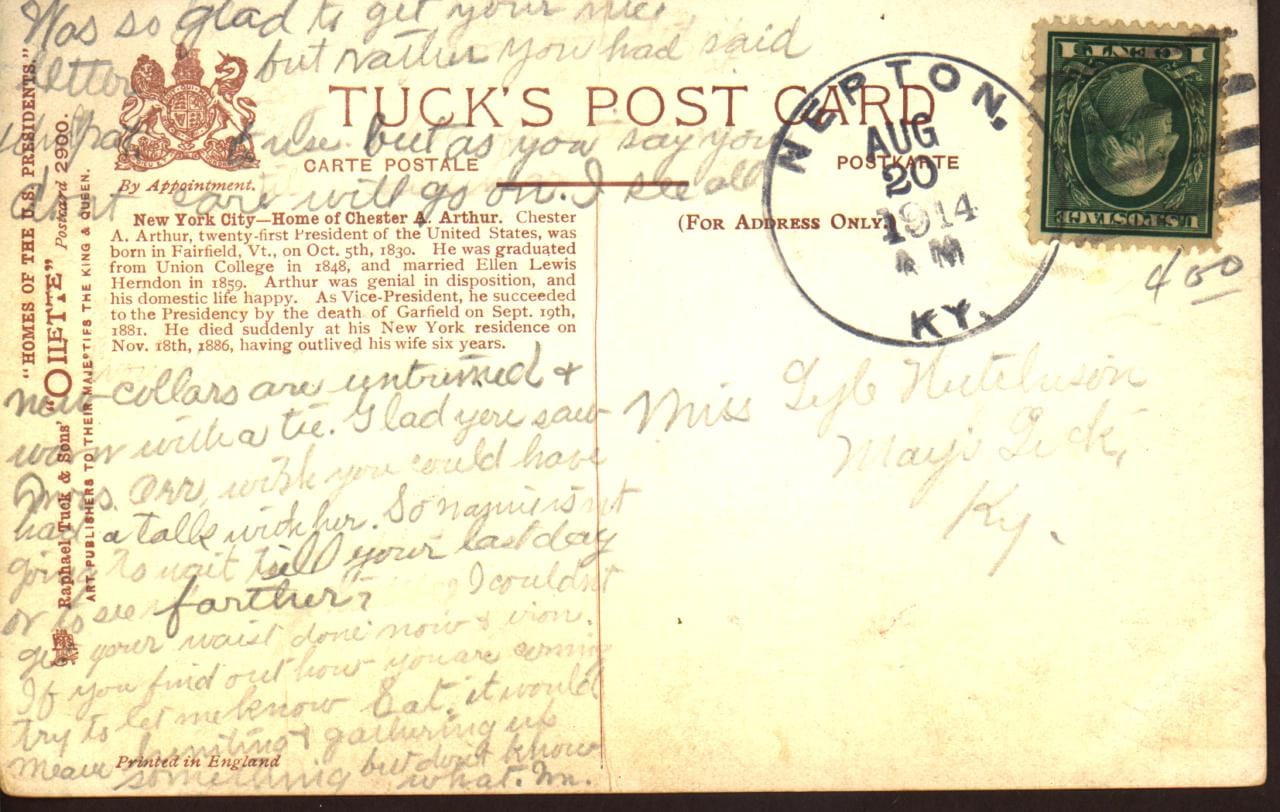 Was so glad to get your nice
letter but rather you had said
what to use but as you say you
don't care will go on. I see all
TUCK'S POST CARD
CARTE POSTALE
POSTKARTE
By Appointment.
(FOR ADDRESS ONLY)
"HOMES OF THE U.S. PRESIDENTS."
Raphael Tuck & Sons' "OILETTE" Postcard 2900.
ART PUBLISHERS TO THEIR MAJESTIES THE KING & QUEEN.
New York City—Home of Chester A. Arthur. Chester
A. Arthur, twenty-first President of the United States, was
born in Fairfield, Vt., on Oct. 5th, 1830. He was graduated
from Union College in 1848, and married Ellen Lewis
Herndon in 1859. Arthur was genial in disposition, and
his domestic life happy. As Vice-President, he succeeded
to the Presidency by the death of Garfield on Sept. 19th,
1881. He died suddenly at his New York residence on
Nov. 18th, 1886, having outlived his wife six years.
new collars are untrimed &
worn with a tie. Glad you saw
Mrs. Orr, wish you could have
had a talk with her. So mamie isn't
going to wait till your last day
or to see farther? I couldn't
get your waist done now & iron.
If you find out how you are coming
try to let me know Eat. it would
mean hunting & gathering up
something but don't know
what. Im.
Printed in England
NEPTON,
AUG
20
1914
AM
KY.
1 CENT 1
U.S. POSTAGE
400
Miss Lyle Hutchison
Mays Lick,
Ky.